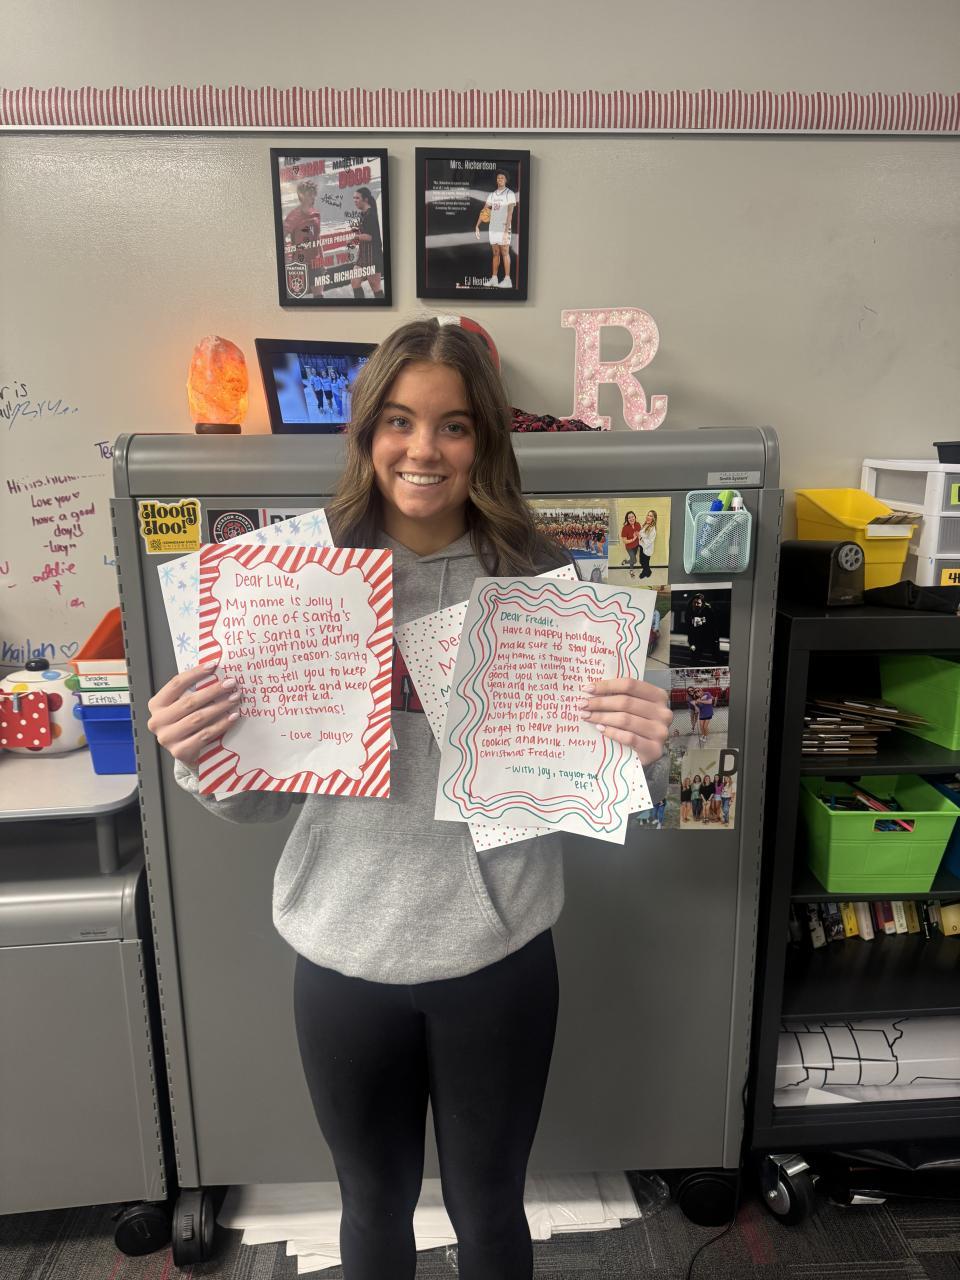 DODD
THANK YOU
MRS. RICHARDSON
Mrs. Richardson
EJ Heath
R
Hooty
Hoo!
KENNESAW STATE
UNIVERSITY
Smith System
Love you
have a good
day!
Kailan ♡
Grades
Extras!
D
Dear Luke,
My name is Jolly I
am one of Santa's
Elf's. Santa is very
busy right now during
the holiday season. Santa
us to tell you to keep
the good work and keep
a great kid.
Merry Christmas!
-Love Jolly♡
Dear Freddie,
Have a happy holidays,
make sure to stay warm.
My name is Taylor the Elf,
Santa was telling us how
good you have been this
year and he said he is
Proud of you. Santa
very very busy in the
North pole, so don
forget to leave him
cookies and milk. Merry
Christmas Freddie!
-With Joy, Taylor the
Elf!